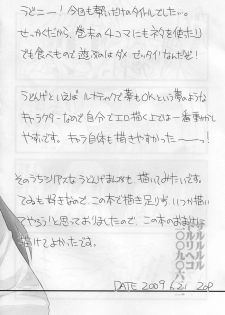 うどにー！今日も勢いだけのタイトルでした…。
せっかくだから、巻末の4コマにもネタを使ったり
でも食べもので遊ぶのはダメゼッタイ！なんだぜ！
うどんげといえばルナティックで薬もOKという夢のような
キャラクターなので自分でエロ描く上では一番動かし
やすいです。キャラ自体も描きやすかったーっ！
そのうちシリアスなうどんげまんがも、描いてみたいです。
てゐも好きなので、この本で描き足りず、いつか描いて
やろう！と思っておりましたので、この本のおまけに
描けてよかったです。
DATE 2009 6.21 20P